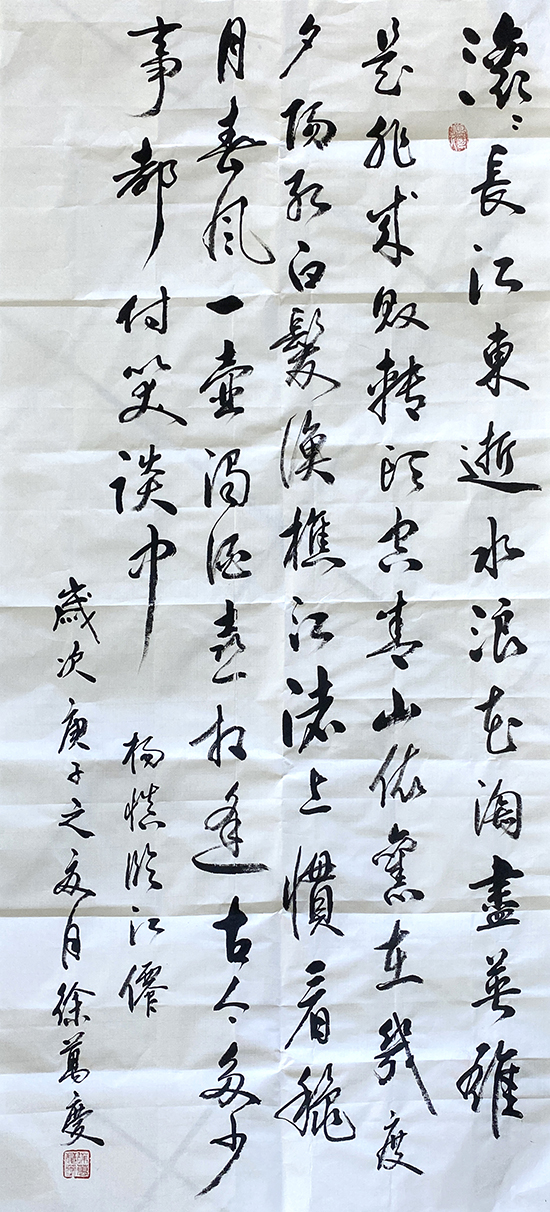 滚〻長江東逝水浪花淘盡英雄
是非成敗轉頭空青山依舊在幾度
夕陽紅白髮漁樵江渚上慣看秋
月春風一壺濁酒喜相逢古今多少
事都付笑談中
楊慎臨江僊
歲次庚子之夏月徐萬慶